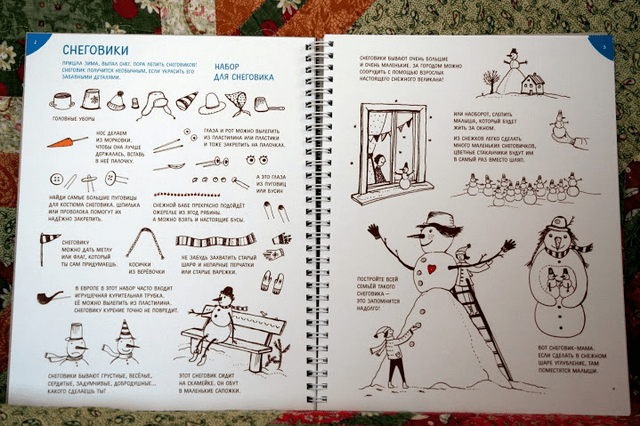 2
СНЕГОВИКИ
ПРИШЛА ЗИМА, ВЫПАЛ СНЕГ. ПОРА ЛЕПИТЬ СНЕГОВИКОВ!
СНЕГОВИК ПОЛУЧИТСЯ НЕОБЫЧНЫМ, ЕСЛИ УКРАСИТЬ ЕГО
ЗАБАВНЫМИ ДЕТАЛЯМИ.
НАБОР
ДЛЯ СНЕГОВИКА
ГОЛОВНЫЕ УБОРЫ
НОС ДЕЛАЕМ
ИЗ МОРКОВКИ.
ЧТОБЫ ОНА ЛУЧШЕ
ДЕРЖАЛАСЬ, ВСТАВЬ
В НЕЁ ПАЛОЧКУ.
ГЛАЗА И РОТ МОЖНО ВЫЛЕПИТЬ
ИЗ ПЛАСТИЛИНА ИЛИ ПЛАСТИКИ
И ТОЖЕ ЗАКРЕПИТЬ НА ПАЛОЧКАХ.
А ЭТО ГЛАЗА
ИЗ ПУГОВИЦ
ИЛИ БУСИН
НАЙДИ САМЫЕ БОЛЬШИЕ ПУГОВИЦЫ
ДЛЯ КОСТЮМА СНЕГОВИКА. ШПИЛЬКА
ИЛИ ПРОВОЛОКА ПОМОГУТ ИХ
НАДЁЖНО ЗАКРЕПИТЬ.
СНЕЖНОЙ БАБЕ ПРЕКРАСНО ПОДОЙДЁТ
ОЖЕРЕЛЬЕ ИЗ ЯГОД РЯБИНЫ.
А МОЖНО ВЗЯТЬ И НАСТОЯЩИЕ БУСЫ.
СНЕГОВИКУ
МОЖНО ДАТЬ МЕТЛУ
ИЛИ ФЛАГ, КОТОРЫЙ
ТЫ САМ ПРИДУМАЕШЬ.
КОСИЧКИ
ИЗ ВЕРЁВОЧКИ
НЕ ЗАБУДЬ ЗАХВАТИТЬ СТАРЫЙ
ШАРФ И НЕПАРНЫЕ ПЕРЧАТКИ
ИЛИ СТАРЫЕ ВАРЕЖКИ.
В ЕВРОПЕ В ЭТОТ НАБОР ЧАСТО ВХОДИТ
ИГРУШЕЧНАЯ КУРИТЕЛЬНАЯ ТРУБКА.
ЕЁ МОЖНО ВЫЛЕПИТЬ ИЗ ПЛАСТИЛИНА.
СНЕГОВИКУ КУРЕНИЕ ТОЧНО НЕ ПОВРЕДИТ.
СНЕГОВИКИ БЫВАЮТ ГРУСТНЫЕ, ВЕСЁЛЫЕ,
СЕРДИТЫЕ, ЗАДУМЧИВЫЕ, ДОБРОДУШНЫЕ...
КАКОГО СДЕЛАЕШЬ ТЫ?
ЭТОТ СНЕГОВИК СИДИТ
НА СКАМЕЙКЕ. ОН ОБУТ
В МАЛЕНЬКИЕ САПОЖКИ.
3
СНЕГОВИКИ БЫВАЮТ ОЧЕНЬ БОЛЬШИЕ
И ОЧЕНЬ МАЛЕНЬКИЕ. ЗА ГОРОДОМ МОЖНО
СООРУДИТЬ С ПОМОЩЬЮ ВЗРОСЛЫХ
НАСТОЯЩЕГО СНЕЖНОГО ВЕЛИКАНА!
ИЛИ, НАОБОРОТ, СЛЕПИТЬ
МАЛЫША, КОТОРЫЙ БУДЕТ
ЖИТЬ ЗА ОКНОМ.
ИЗ СНЕЖКОВ ЛЕГКО СДЕЛАТЬ
МНОГО МАЛЕНЬКИХ СНЕГОВИЧКОВ,
ЦВЕТНЫЕ СТАКАНЧИКИ БУДУТ ИМ
В САМЫЙ РАЗ ВМЕСТО ШЛЯП.
ПОСТРОЙТЕ ВСЕЙ
СЕМЬЁЙ ТАКОГО
СНЕГОВИКА —
ЭТО ЗАПОМНИТСЯ
НАДОЛГО!
ВОТ СНЕГОВИК-МАМА.
ЕСЛИ СДЕЛАТЬ В СНЕЖНОМ
ШАРЕ УГЛУБЛЕНИЕ, ТАМ
ПОМЕСТЯТСЯ МАЛЫШИ.